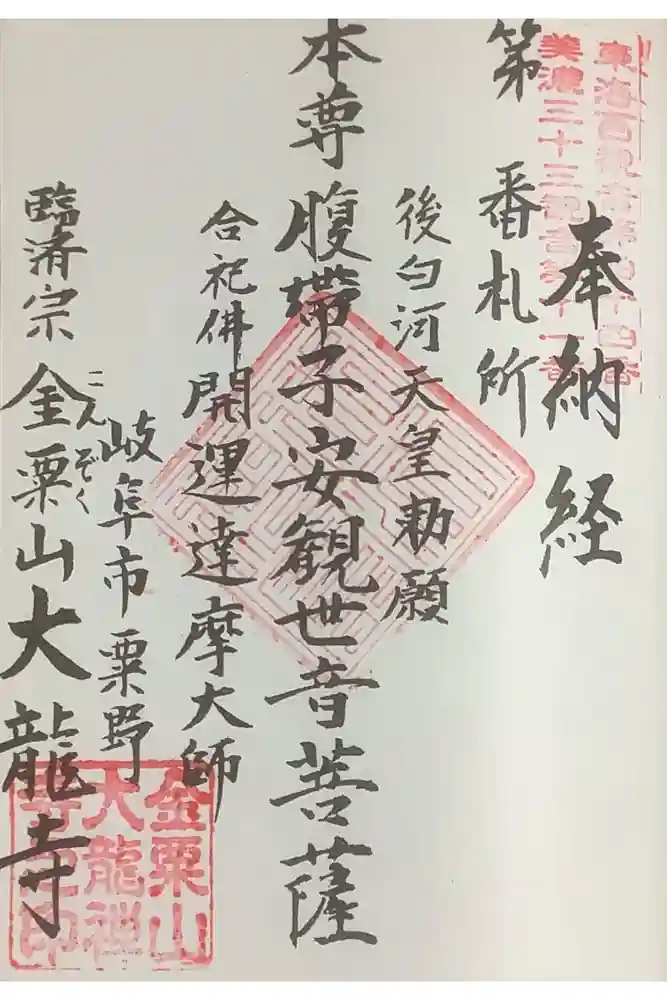 奉納経
美濃三十三観音第十一番
第　番札所
後白河天皇勅願
本尊腹帯子安観世音菩薩
合祀佛開運達摩大師
岐阜市粟野
臨済宗金粟山大龍寺
こんぞく
金粟山
大龍禅
寺之印